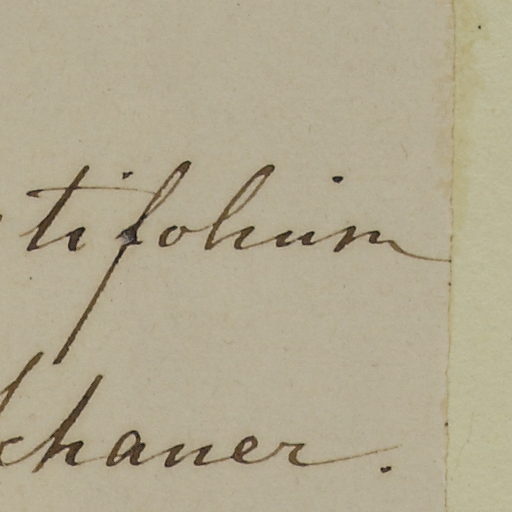 tifolium
chauer.